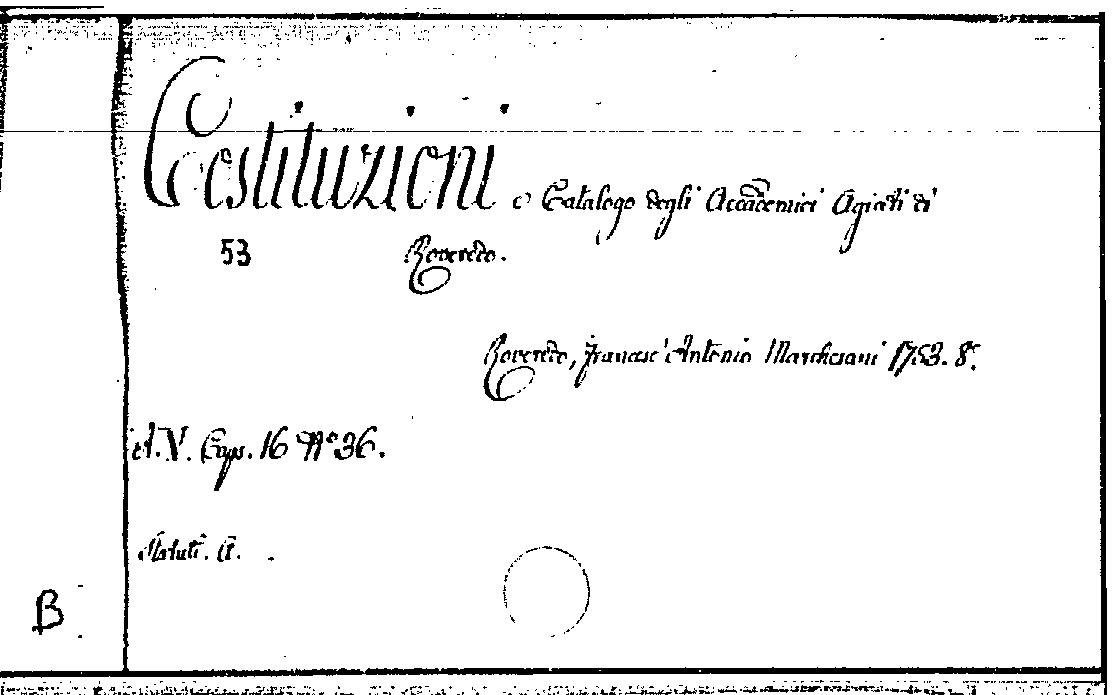 Costituzioni e Catalogo degli Accademici Agiati di
53 Roveredo.
Roveredo, Francesc'Antonio Marchesani 1753. 8º.
A.V. Caps. 16 Nº 36.
Statuti. A.
B